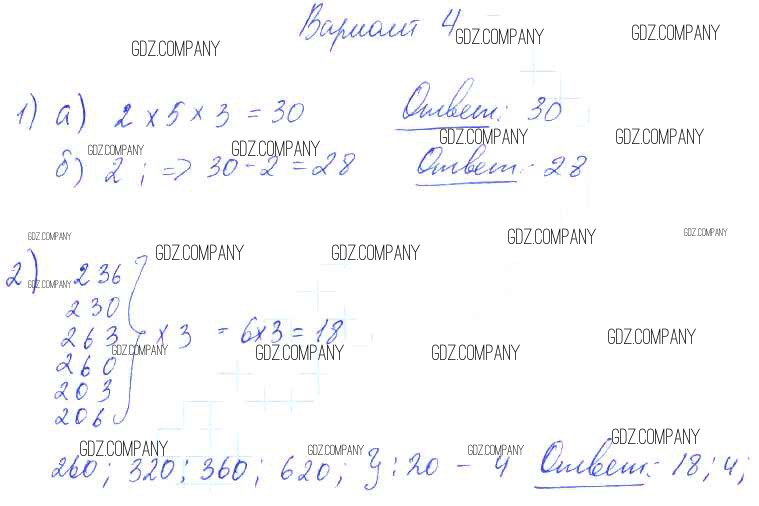 Вариант 4
GDZ.COMPANY GDZ.COMPANY GDZ.COMPANY
1) а) 2 × 5 × 3 = 30 Ответ: 30
GDZ.COMPANY GDZ.COMPANY GDZ.COMPANY GDZ.COMPANY
б) 2 ; => 30 - 2 = 28 Ответ: 28
GDZ.COMPANY GDZ.COMPANY GDZ.COMPANY GDZ.COMPANY GDZ.COMPANY
2) 236
GDZ.COMPANY
230
263 × 3 = 6×3 = 18
GDZ.COMPANY GDZ.COMPANY GDZ.COMPANY GDZ.COMPANY
260
203
206
GDZ.COMPANY GDZ.COMPANY GDZ.COMPANY GDZ.COMPANY
260; 320; 360; 620; :20 - 4 Ответ: 18; 4;